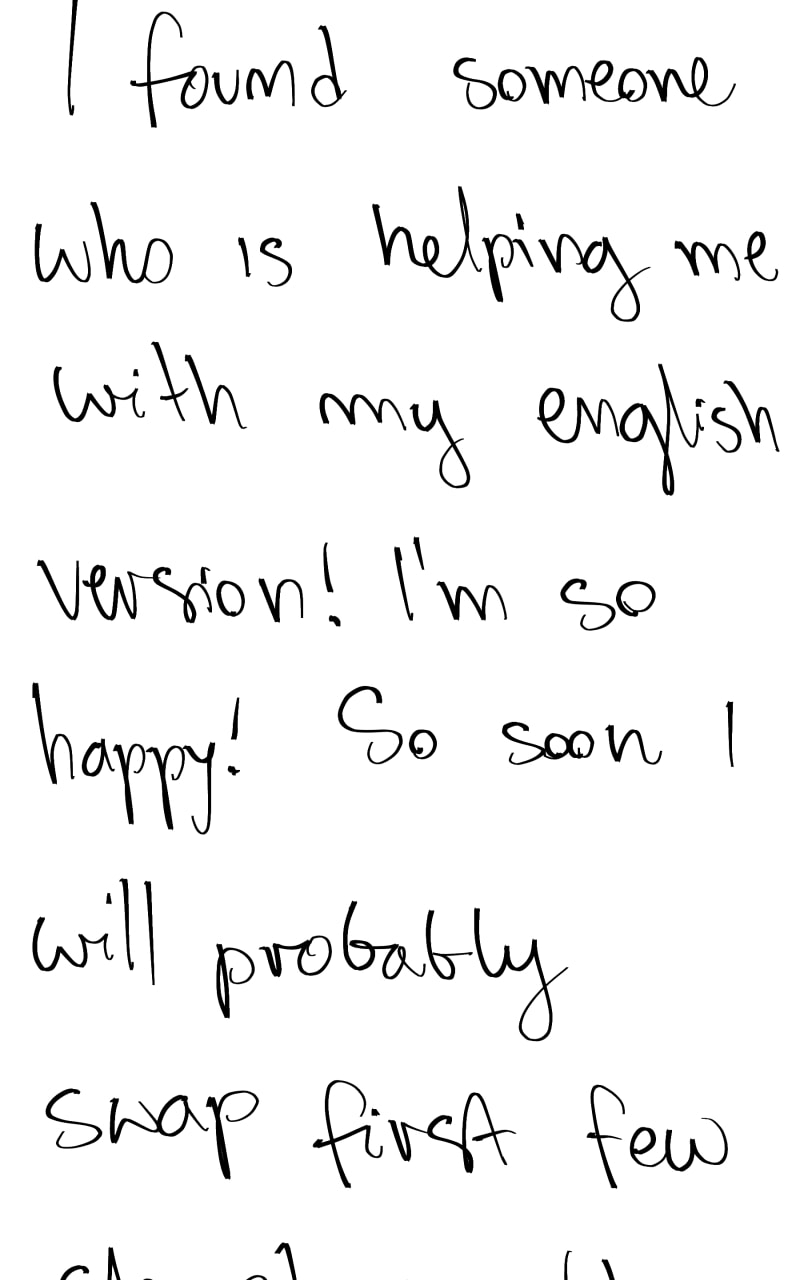 I found someone
who is helping me
with my english
version! I'm so
happy! So soon I
will probably
swap first few